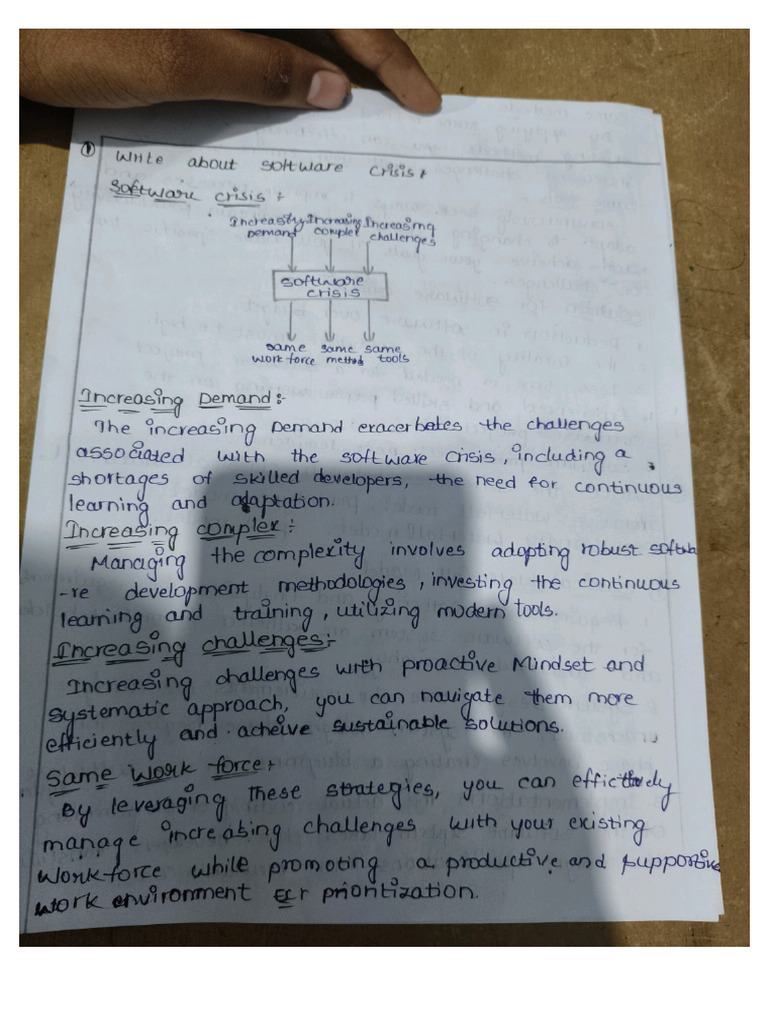 ① Write about software crisis:
Software crisis :
Increasing Increasing Increasing
Demand complex challenges
software
crisis
same same same
work force method tools
Increasing Demand:-
The increasing Demand exacerbates the challenges
associated with the software crisis, including a
shortages of skilled developers, the need for continuous
learning and adaptation.
Increasing complex:-
Managing the complexity involves adopting robust softwa
-re development methodologies, investing the continuous
learning and training, utilizing modern tools.
Increasing challenges:-
Increasing challenges with proactive Mindset and
systematic approach, you can navigate them more
efficiently and acheive sustainable solutions.
Same work force:-
By leveraging these strategies, you can effictively
manage increasing challenges with your existing
workforce while promoting a productive and supportive
work environment or prioritization.